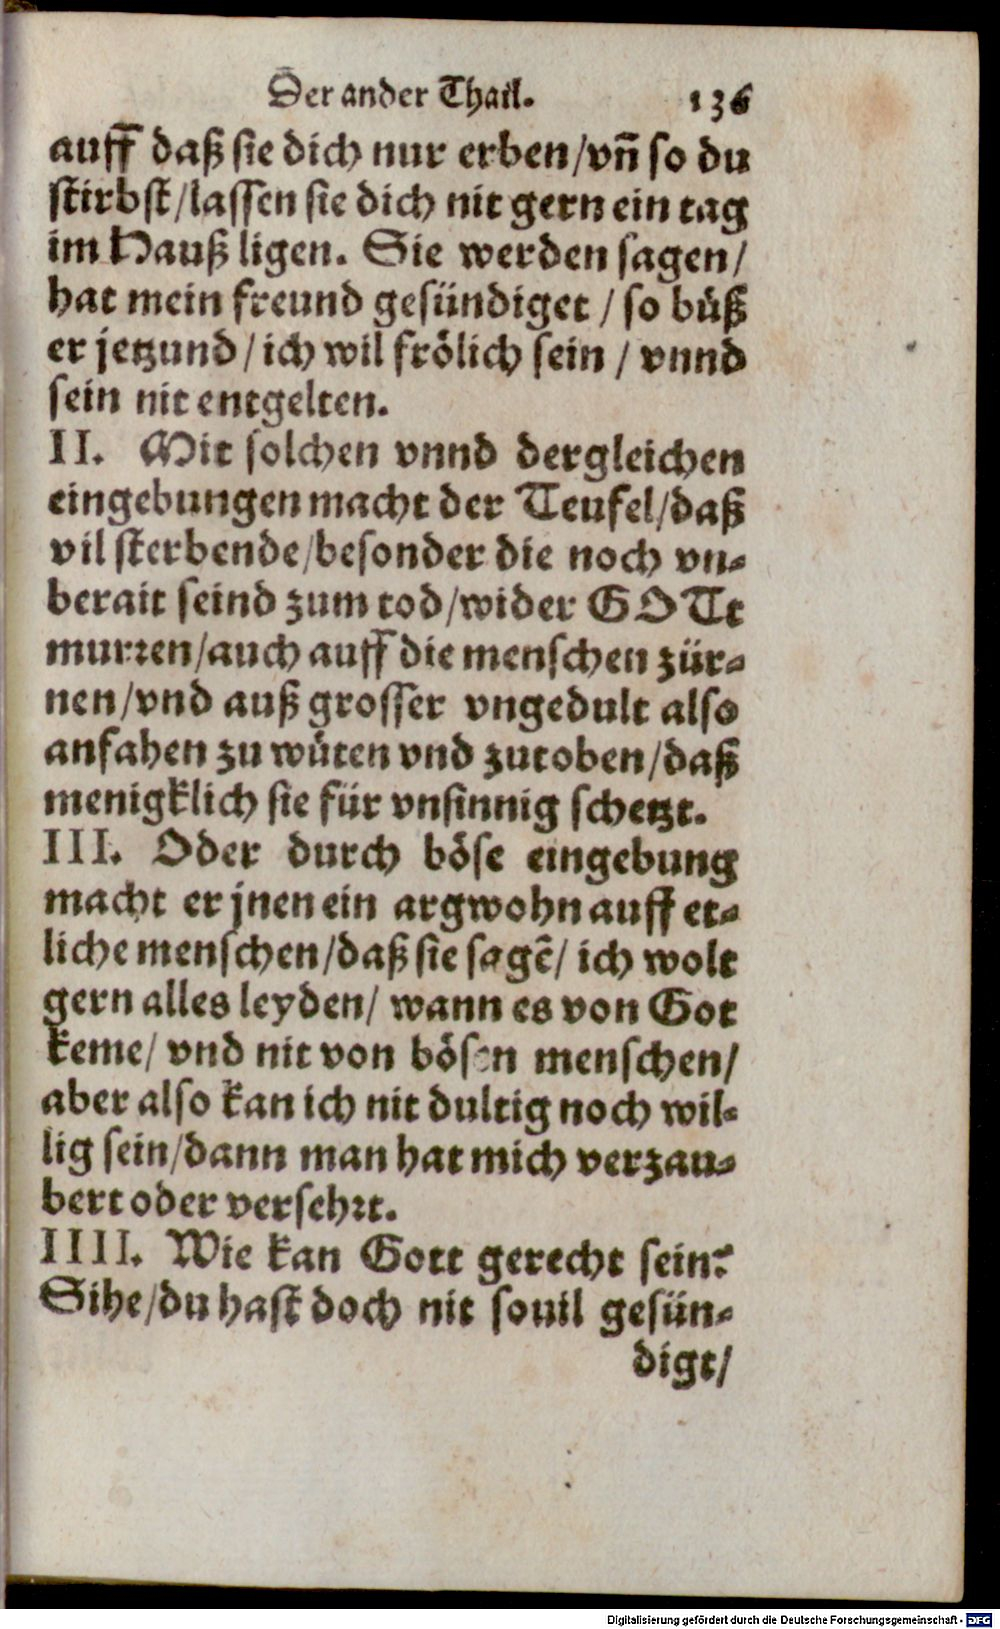 Der ander Thail. 136
auff daß sie dich nur erben/vñ so du
stirbst/lassen sie dich nit gern ein tag
im Hauß ligen. Sie werden sagen/
hat mein freund gesündiget / so büß
er jetzund / ich wil frölich sein / vnnd
sein nit entgelten.
II. Mit solchen vnnd dergleichen
eingebungen macht der Teufel/daß
vil sterbende/besonder die noch vn-
berait seind zum tod/wider GOTt
murren/auch auff die menschen zür-
nen/vnd auß grosser vngedult also
anfahen zu wüten vnd zutoben/daß
menigklich sie für vnsinnig schetzt.
III. Oder durch böse eingebung
macht er jnen ein argwohn auff et-
liche menschen/daß sie sagē/ ich wolt
gern alles leyden/ wann es von Got
keme/ vnd nit von bösen menschen/
aber also kan ich nit dultig noch wil-
lig sein/dann man hat mich verzau-
bert oder versehrt.
IIII. Wie kan Gott gerecht sein?
Sihe/du hast doch nit souil gesün-
digt/
Digitalisierung gefördert durch die Deutsche Forschungsgemeinschaft - DFG